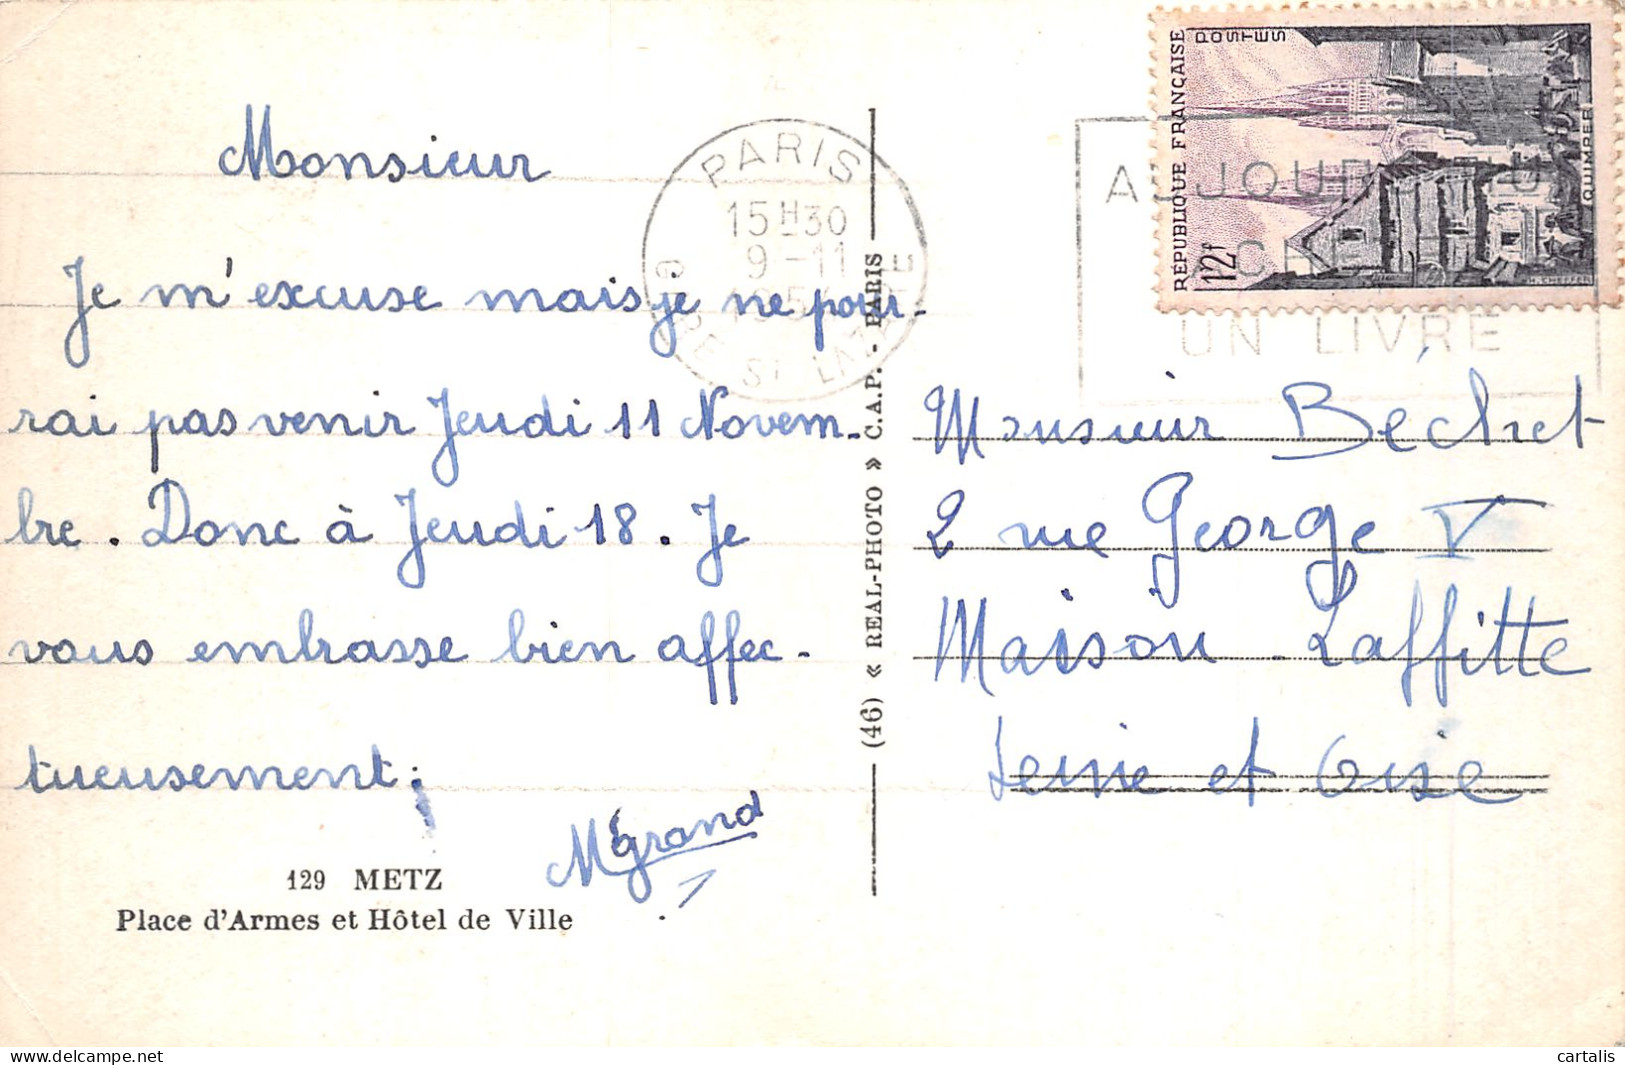 Monsieur
Je m'excuse mais je ne pour-
rai pas venir Jeudi 11 Novem-
bre. Donc à Jeudi 18. Je
vous embrasse bien affec-
tueusement.
MGrand
129 METZ
Place d'Armes et Hôtel de Ville
(46) « REAL-PHOTO » C.A.P. - PARIS
PARIS
15H30
9-11
GARE ST LAZARE
UN LIVRE
RÉPUBLIQUE FRANÇAISE
POSTES
12f
QUIMPER
Monsieur Béchet
2 rue George V
Maison-Laffitte
Seine et Oise
cartalis